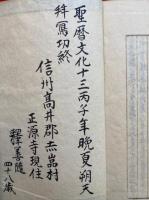 聖暦文化十三丙子年晩夏朔天
拝寫切終
信州高井郡赤岩村
正源寺現住
釋善随
四十八歳